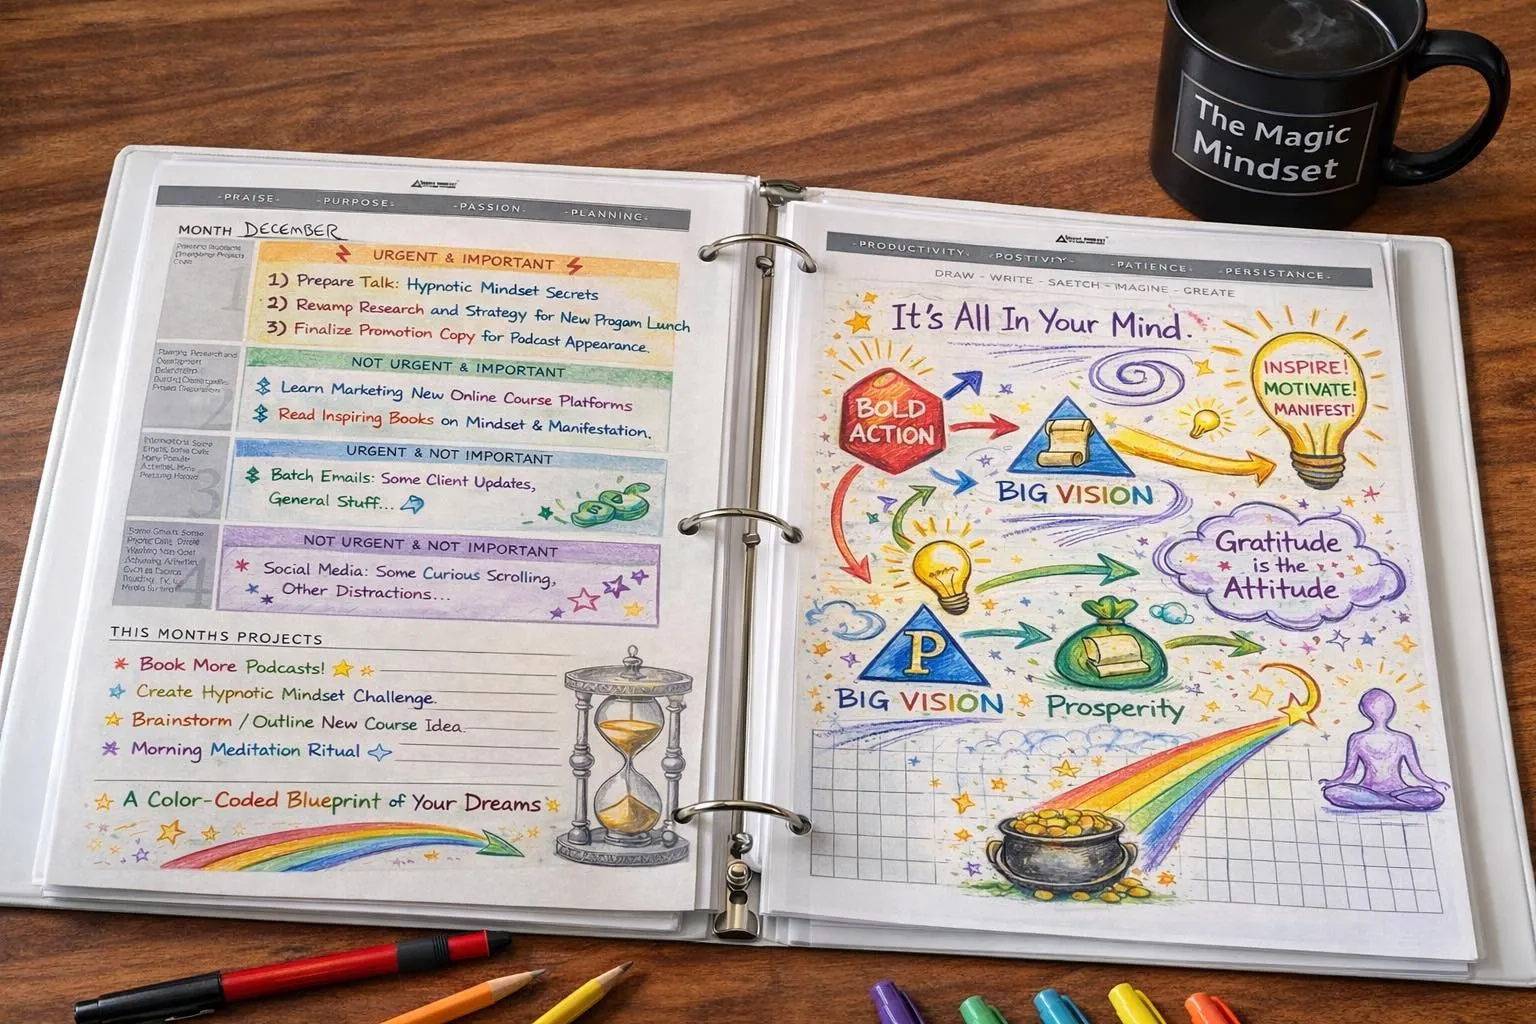 -PRAISE- -PURPOSE- -PASSION- -PLANNING-
MONTH DECEMBER
1
URGENT & IMPORTANT
1) Prepare Talk: Hypnotic Mindset Secrets
2) Revamp Research and Strategy for New Progam Lunch
3) Finalize Promotion Copy for Podcast Appearance.
2
NOT URGENT & IMPORTANT
Learn Marketing New Online Course Platforms
Read Inspiring Books on Mindset & Manifestation.
3
URGENT & NOT IMPORTANT
Batch Emails: Some Client Updates,
General Stuff...
4
NOT URGENT & NOT IMPORTANT
Social Media: Some Curious Scrolling,
Other Distractions...
THIS MONTHS PROJECTS
Book More Podcasts!
Create Hypnotic Mindset Challenge.
Brainstorm / Outline New Course Idea.
Morning Meditation Ritual
A Color-Coded Blueprint of Your Dreams
-PRODUCTIVITY- -POSTIVIY- -PATIENCE- -PERSISTANCE-
DRAW - WRITE - SAETCH - IMAGINE - CREATE
It's All In Your Mind.
BOLD
ACTION
BIG VISION
INSPIRE!
MOTIVATE!
MANIFEST!
Gratitude
is the
Attitude
P
BIG VISION
Prosperity
The Magic
Mindset